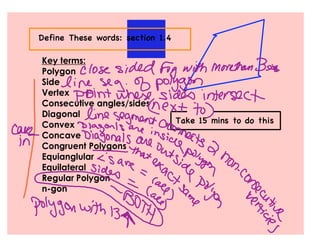 Define These words: section 1.4
Key terms:
Polygon close sided fig with more than 3 sides
Side line seg. of polygon
Vertex point where sides intersect
Consecutive angles/sides next to
Diagonal line segment connects 2 nonconsecutive verticies
Take 15 mins to do this
Convex Diagonals are inside polygon
Concave Diagonals are outside polygon
Cave in
Congruent Polygons that exact same
Equiangular < same = (all)
Equilateral sides = (all)
Regular Polygon - (BOTH)
n-gon
polygon with 13↑